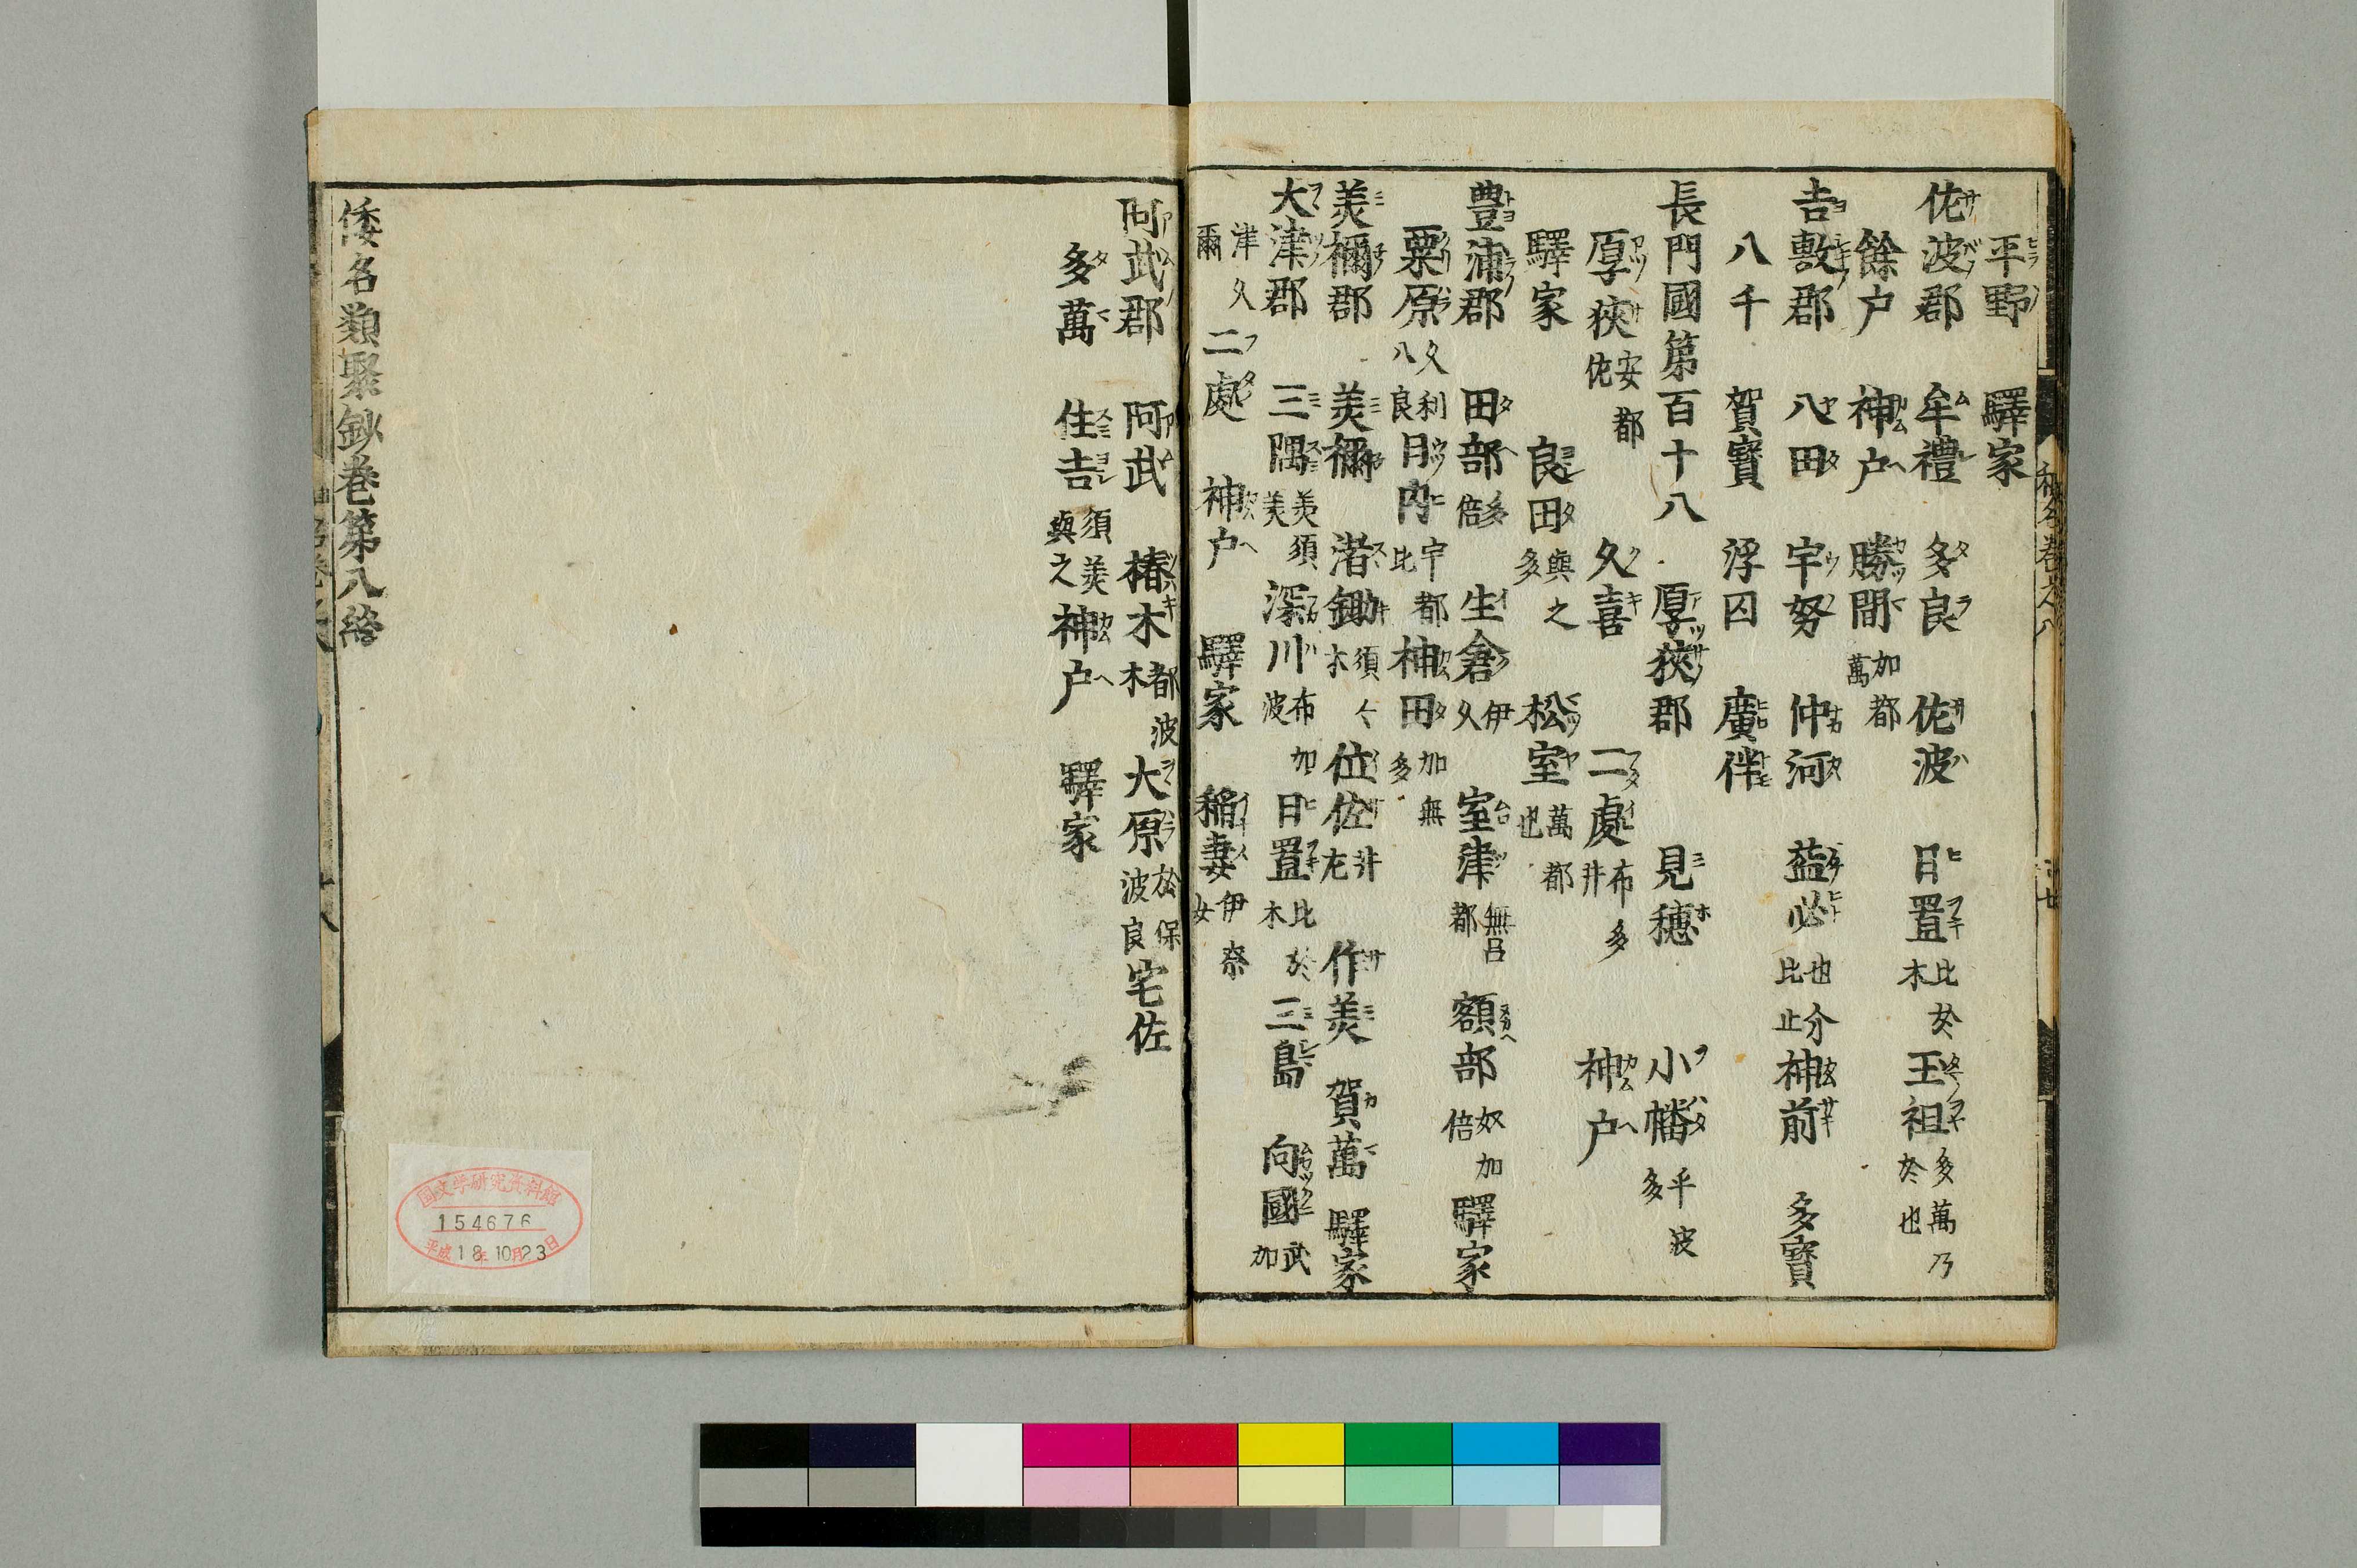 平野 驛家
佐波郡 牟禮 多良 佐波 日置比於木 玉祖多萬乃於也
餘戸 神戸 勝間加都萬
吉敷郡 八田 宇努 仲河 益必也介比止 神前 多寶
八千 賀寶 浮囚 廣伴
長門國第百十八 厚狹郡 見穗 小幡乎波多
厚狹安都佐 久喜 二處布多井 神戸
驛家 良田與之多 松室萬都也
豊浦郡 田部多倍 生倉伊久 室津無呂都 額部奴加倍 驛家
粟原久利八良 月内宇都比 神田加無多
美禰郡 美禰 渚鋤須々木 位佐井左 作美 賀萬 驛家
大津郡 三隅美須美 深川布加波 日置比於木 三島 向國武加
津久爾 二處 神戸 驛家 稲妻伊奈女
阿武郡 阿武 椿木都波木 大原於保波良 宅佐
多萬 住吉須美與之 神戸 驛家
倭名類聚鈔巻第八終
国文学研究資料館
154676
平成18年10月23日